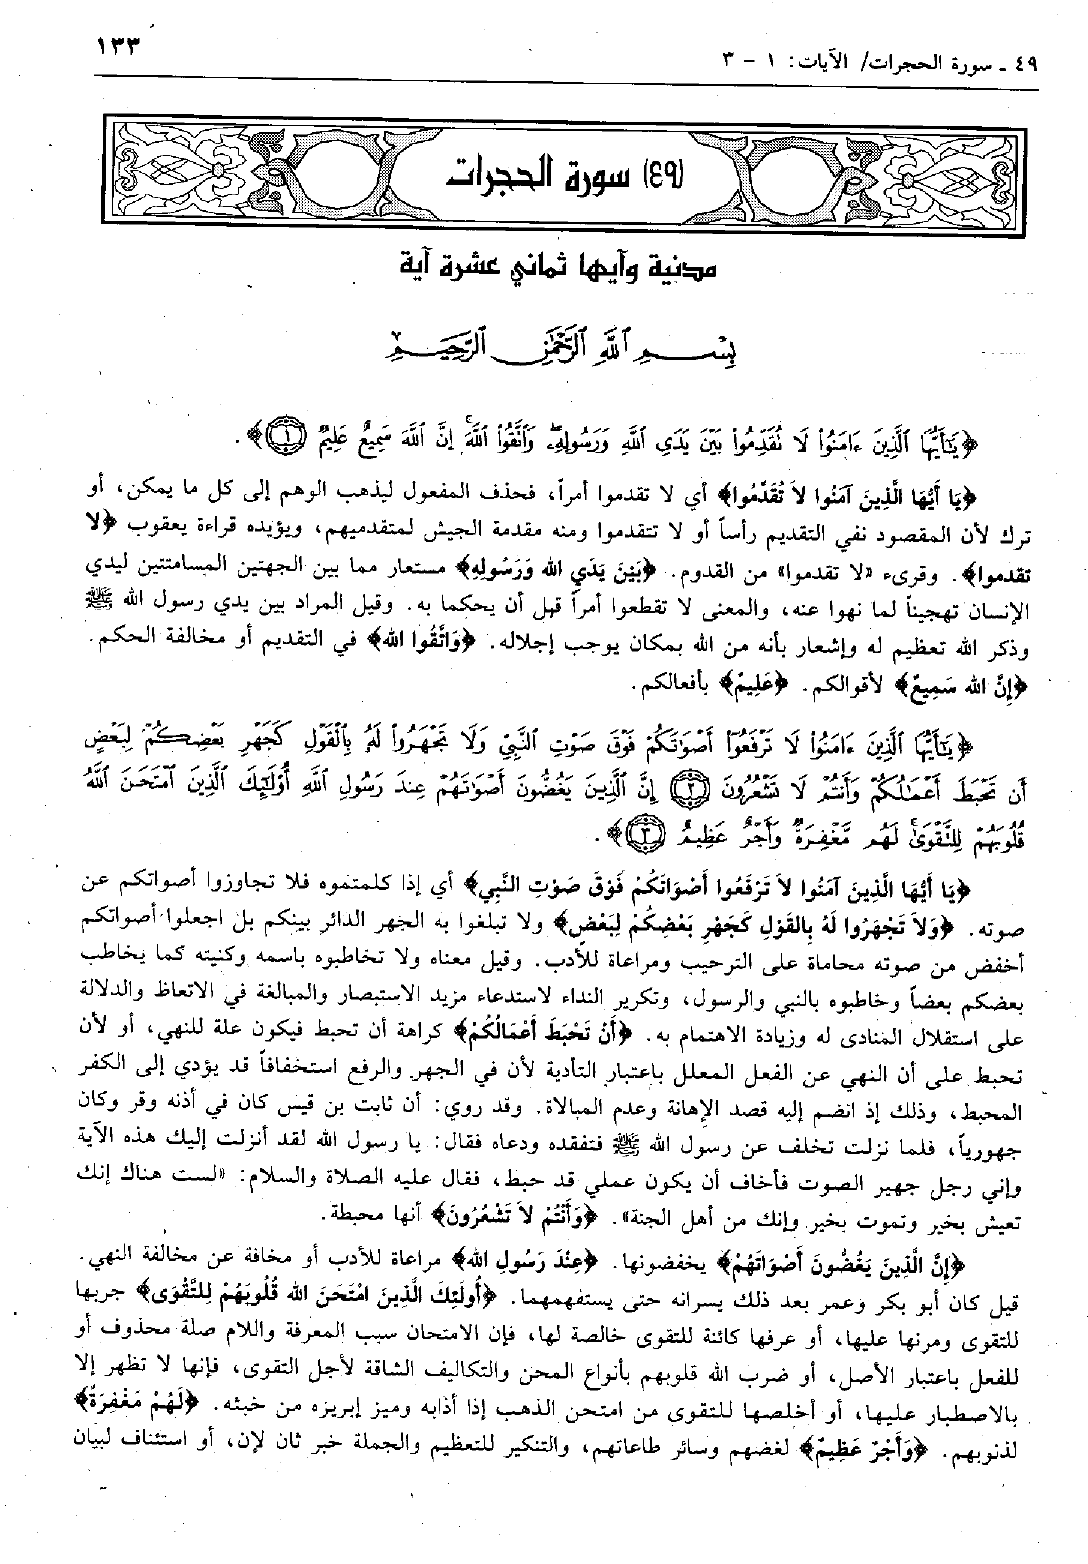 ٤٩ ـ سورة الحجرات/ الآيات: ١ - ٣
١٣٣
(٤٩) سورة الحجرات
مدنية وآيها ثماني عشرة آية
بِسْمِ ٱللَّهِ ٱلرَّحْمَٰنِ ٱلرَّحِيمِ
﴿يَٰٓأَيُّهَا ٱلَّذِينَ ءَامَنُوا۟ لَا تُقَدِّمُوا۟ بَيْنَ يَدَىِ ٱللَّهِ وَرَسُولِهِۦ وَٱتَّقُوا۟ ٱللَّهَ إِنَّ ٱللَّهَ سَمِيعٌ عَلِيمٌ ﴿١﴾﴾.
﴿يَا أَيُّهَا الَّذِينَ آمَنُوا لاَ تُقَدِّمُوا﴾ أي لا تقدموا أمراً، فحذف المفعول ليذهب الوهم إلى كل ما يمكن، أو
ترك لأن المقصود نفي التقديم رأساً أو لا تتقدموا ومنه مقدمة الجيش لمتقدميهم، ويؤيده قراءة يعقوب ﴿لا
تقدموا﴾. وقرىء «لا تقدموا» من القدوم. ﴿بَيْنَ يَدَيِ الله وَرَسُولِهِ﴾ مستعار مما بين الجهتين المسامتتين ليدي
الإنسان تهجيناً لما نهوا عنه، والمعنى لا تقطعوا أمراً قبل أن يحكما به. وقيل المراد بين يدي رسول الله ﷺ
وذكر الله تعظيم له وإشعار بأنه من الله بمكان يوجب إجلاله. ﴿وَاتَّقُوا الله﴾ في التقديم أو مخالفة الحكم.
﴿إِنَّ الله سَمِيعٌ﴾ لأقوالكم. ﴿عَلِيمٌ﴾ بأفعالكم.
﴿يَٰٓأَيُّهَا ٱلَّذِينَ ءَامَنُوا۟ لَا تَرْفَعُوٓا۟ أَصْوَٰتَكُمْ فَوْقَ صَوْتِ ٱلنَّبِىِّ وَلَا تَجْهَرُوا۟ لَهُۥ بِٱلْقَوْلِ كَجَهْرِ بَعْضِكُمْ لِبَعْضٍ
أَن تَحْبَطَ أَعْمَٰلُكُمْ وَأَنتُمْ لَا تَشْعُرُونَ ﴿٢﴾ إِنَّ ٱلَّذِينَ يَغُضُّونَ أَصْوَٰتَهُمْ عِندَ رَسُولِ ٱللَّهِ أُو۟لَٰٓئِكَ ٱلَّذِينَ ٱمْتَحَنَ ٱللَّهُ
قُلُوبَهُمْ لِلتَّقْوَىٰ لَهُم مَّغْفِرَةٌ وَأَجْرٌ عَظِيمٌ ﴿٣﴾﴾.
﴿يَا أَيُّهَا الَّذِينَ آمَنُوا لاَ تَرْفَعُوا أَصْوَاتَكُمْ فَوْقَ صَوْتِ النَّبِي﴾ أي إذا كلمتموه فلا تجاوزوا أصواتكم عن
صوته. ﴿وَلاَ تَجْهَرُوا لَهُ بِالقَوْلِ كَجَهْرِ بَعْضِكُمْ لِبَعْضٍ﴾ ولا تبلغوا به الجهر الدائر بينكم بل اجعلوا أصواتكم
أخفض من صوته محاماة على الترحيب ومراعاة للأدب. وقيل معناه ولا تخاطبوه باسمه وكنيته كما يخاطب
بعضكم بعضاً وخاطبوه بالنبي والرسول، وتكرير النداء لاستدعاء مزيد الاستبصار والمبالغة في الاتعاظ والدلالة
على استقلال المنادى له وزيادة الاهتمام به. ﴿أَنْ تَحْبَطَ أَعْمَالُكُمْ﴾ كراهة أن تحبط فيكون علة للنهي، أو لأن
تحبط على أن النهي عن الفعل المعلل باعتبار التأدية لأن في الجهر والرفع استخفافاً قد يؤدي إلى الكفر
المحبط، وذلك إذ انضم إليه قصد الإهانة وعدم المبالاة. وقد روي: أن ثابت بن قيس كان في أذنه وقر وكان
جهورياً، فلما نزلت تخلف عن رسول الله ﷺ فتفقده ودعاه فقال: يا رسول الله لقد أنزلت إليك هذه الآية
وإني رجل جهير الصوت فأخاف أن يكون عملي قد حبط، فقال عليه الصلاة والسلام: «لست هناك إنك
تعيش بخير وتموت بخير وإنك من أهل الجنة». ﴿وَأَنْتُمْ لاَ تَشْعُرُونَ﴾ أنها محبطة.
﴿إِنَّ الَّذِينَ يَغُضُّونَ أَصْوَاتَهُمْ﴾ يخفضونها. ﴿عِنْدَ رَسُولِ الله﴾ مراعاة للأدب أو مخافة عن مخالفة النهي.
قيل كان أبو بكر وعمر بعد ذلك يسرانه حتى يستفهمهما. ﴿أُولَئِكَ الَّذِينَ امْتَحَنَ الله قُلُوبَهُمْ لِلتَّقْوَى﴾ جربها
للتقوى ومرنها عليها، أو عرفها كائنة للتقوى خالصة لها، فإن الامتحان سبب المعرفة واللام صلة محذوف أو
للفعل باعتبار الأصل، أو ضرب الله قلوبهم بأنواع المحن والتكاليف الشاقة لأجل التقوى، فإنها لا تظهر إلا
بالاصطبار عليها، أو أخلصها للتقوى من امتحن الذهب إذا أذابه وميز إبريزه من خبثه. ﴿لَهُمْ مَغْفِرَةٌ﴾
لذنوبهم. ﴿وَأَجْرٌ عَظِيمٌ﴾ لغضهم وسائر طاعاتهم، والتنكير للتعظيم والجملة خبر ثان لإن، أو استئناف لبيان